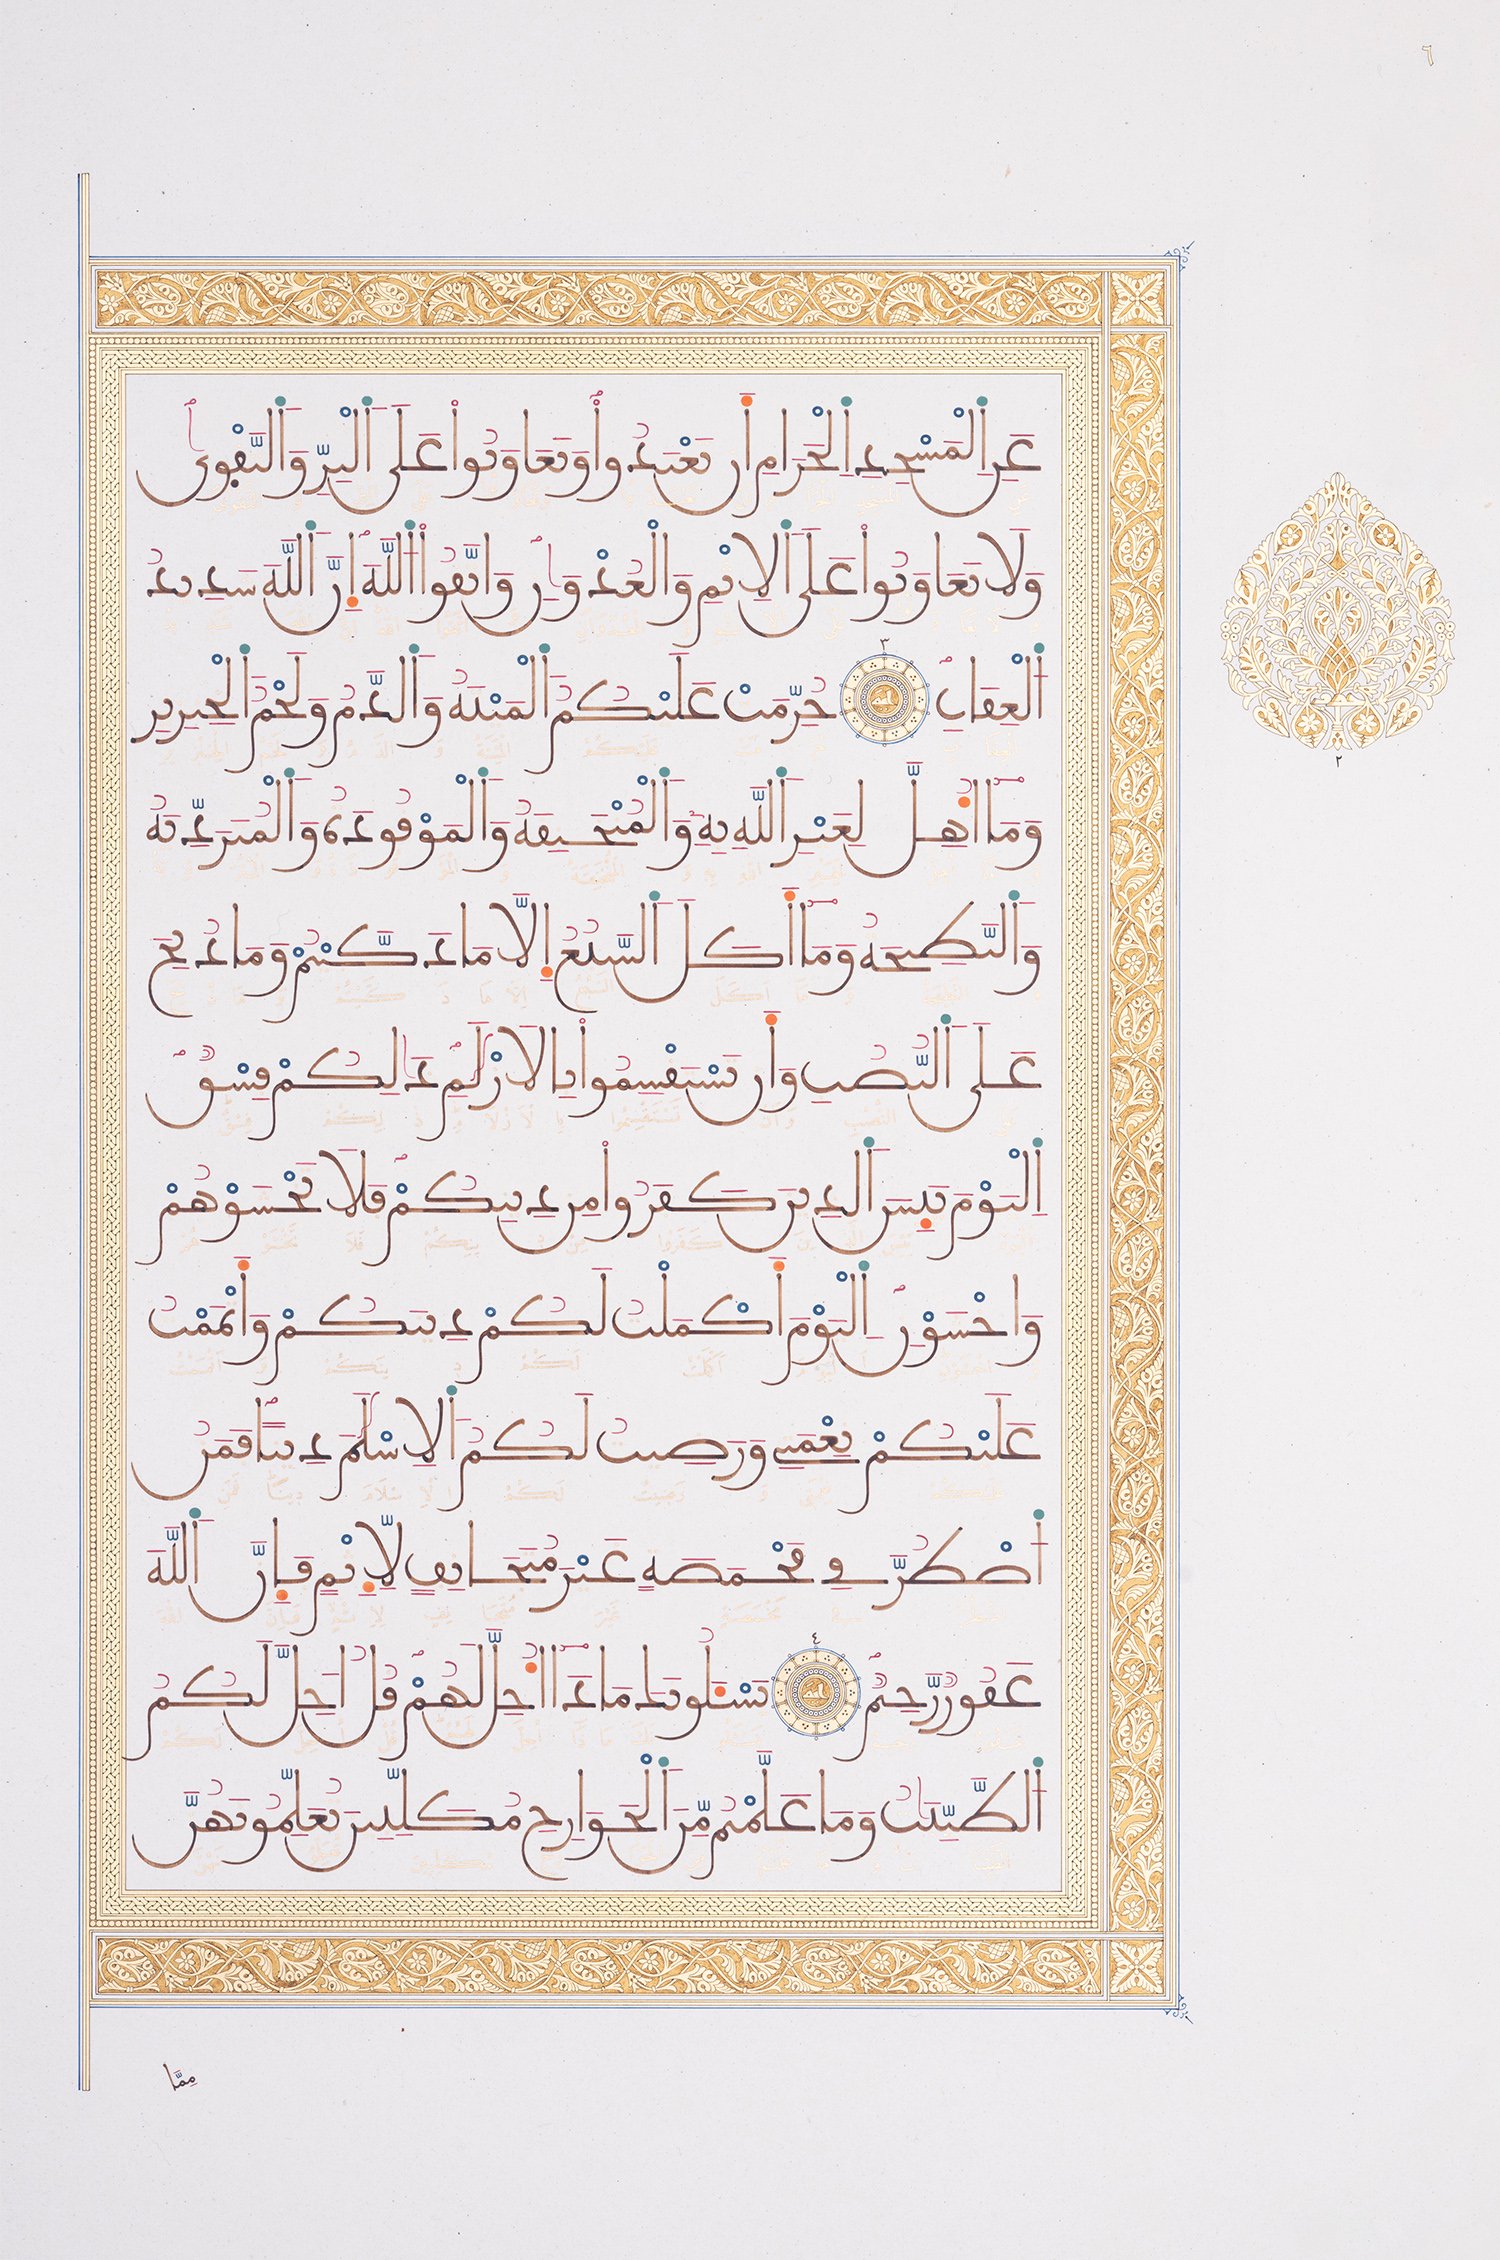 ٦
عَنِ الْمَسْجِدِ الْحَرَامِ أَن تَعْتَدُوا وَتَعَاوَنُوا عَلَى الْبِرِّ وَالتَّقْوَىٰ
وَلَا تَعَاوَنُوا عَلَى الْإِثْمِ وَالْعُدْوَٰنِ وَاتَّقُوا اللَّهَ إِنَّ اللَّهَ شَدِيدُ
الْعِقَابِ ٣ حُرِّمَتْ عَلَيْكُمُ الْمَيْتَةُ وَالدَّمُ وَلَحْمُ الْخِنزِيرِ
وَمَا أُهِلَّ لِغَيْرِ اللَّهِ بِهِ وَالْمُنْخَنِقَةُ وَالْمَوْقُوذَةُ وَالْمُتَرَدِّيَةُ
وَالنَّطِيحَةُ وَمَا أَكَلَ السَّبُعُ إِلَّا مَا ذَكَّيْتُمْ وَمَا ذُبِحَ
عَلَى النُّصُبِ وَأَن تَسْتَقْسِمُوا بِالْأَزْلَٰمِ ذَٰلِكُمْ فِسْقٌ
الْيَوْمَ يَئِسَ الَّذِينَ كَفَرُوا مِن دِينِكُمْ فَلَا تَخْشَوْهُمْ
وَاخْشَوْنِ الْيَوْمَ أَكْمَلْتُ لَكُمْ دِينَكُمْ وَأَتْمَمْتُ
عَلَيْكُمْ نِعْمَتِي وَرَضِيتُ لَكُمُ الْإِسْلَٰمَ دِينًا فَمَنِ
اضْطُرَّ فِي مَخْمَصَةٍ غَيْرَ مُتَجَانِفٍ لِّإِثْمٍ فَإِنَّ اللَّهَ
غَفُورٌ رَّحِيمٌ ٤ يَسْـَٔلُونَكَ مَاذَا أُحِلَّ لَهُمْ قُلْ أُحِلَّ لَكُمُ
الطَّيِّبَٰتُ وَمَا عَلَّمْتُم مِّنَ الْجَوَارِحِ مُكَلِّبِينَ تُعَلِّمُونَهُنَّ
مِمَّا
٢